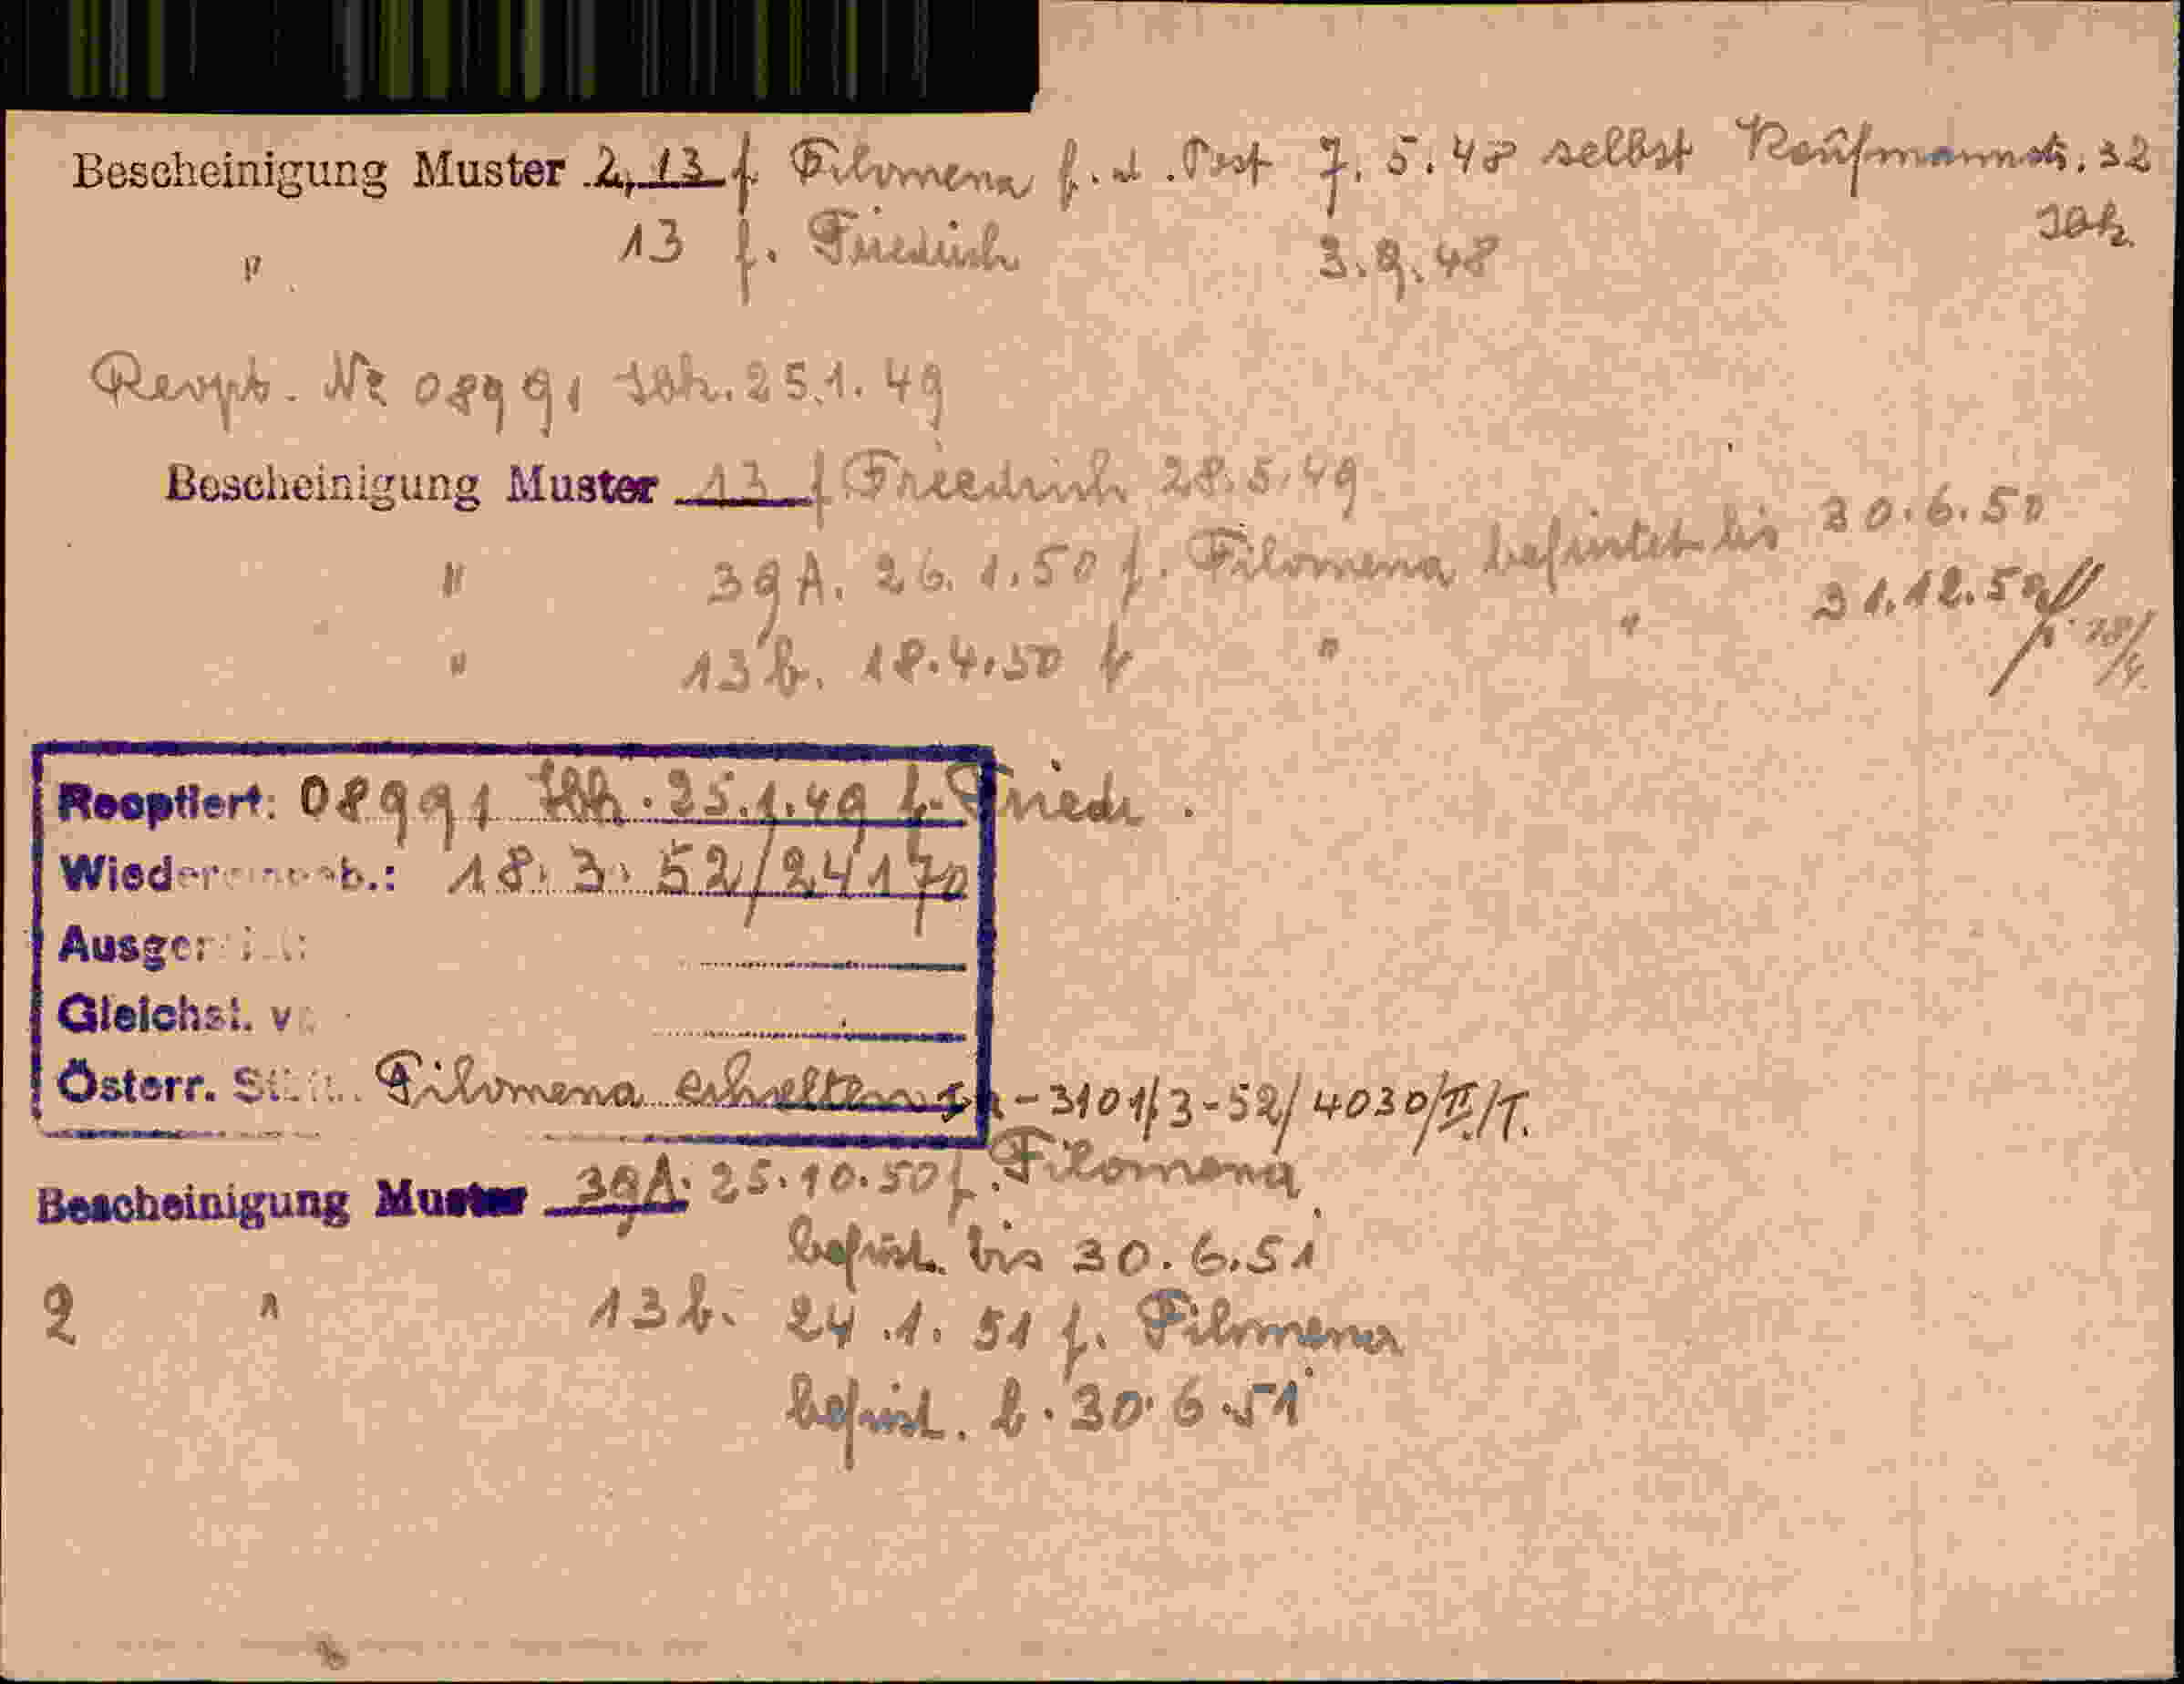 Bescheinigung Muster 2, 13 f. Filomena f. d. Post 7. 5. 48 selbst Kaufmannstr. 32
Ibk.
" 13 f. Friedrich 3. 9. 48
Reopt. Nr 08991 Ibk. 25.1.49
Bescheinigung Muster 13 f Friedrich 28.5.49
" 39A. 26. 1. 50 f. Filomena befristet bis 30. 6. 50
" 13b. 18. 4. 50 f " " 31. 12. 50
Reoptiert: 08991 Ibk. 25.1.49 f. Friedr.
18. 3. 52/24170
Gleichst.
Österr. Filomena erhalten - 3101/3-52/4030/II/T.
Bescheinigung Muster 39A. 25. 10. 50 f. Filomena
befrist. bis 30. 6. 51
2 " 13b. 24. 1. 51 f. Filomena
befrist. b. 30. 6. 51